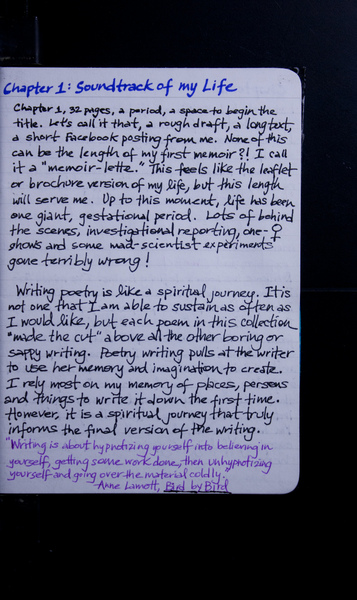 Chapter 1: Soundtrack of my Life
Chapter 1, 32 pages, a period, a space to begin the
title. Let's call it that, a rough draft, a long text,
a short Facebook posting from me. None of this
can be the length of my first memoir?! I call
it a "memoir-lette." This feels like the leaflet
or brochure version of my life, but this length
will serve me. Up to this moment, life has been
one giant, gestational period. Lots of behind
the scenes, investigational reporting, one-♀
shows and some mad-scientist experiments
gone terribly wrong!
Writing poetry is like a spiritual journey. It is
not one that I am able to sustain as often as
I would like, but each poem in this collection
"made the cut" above all the other boring or
sappy writing. Poetry writing pulls at the writer
to use her memory and imagination to create.
I rely most on my memory of places, persons
and things to write it down the first time.
However, it is a spiritual journey that truly
informs the final version of the writing.
"Writing is about hypnotizing yourself into believing in
yourself, getting some work done, then unhypnotizing
yourself and going over the material coldly."
-Anne Lamott, Bird by Bird